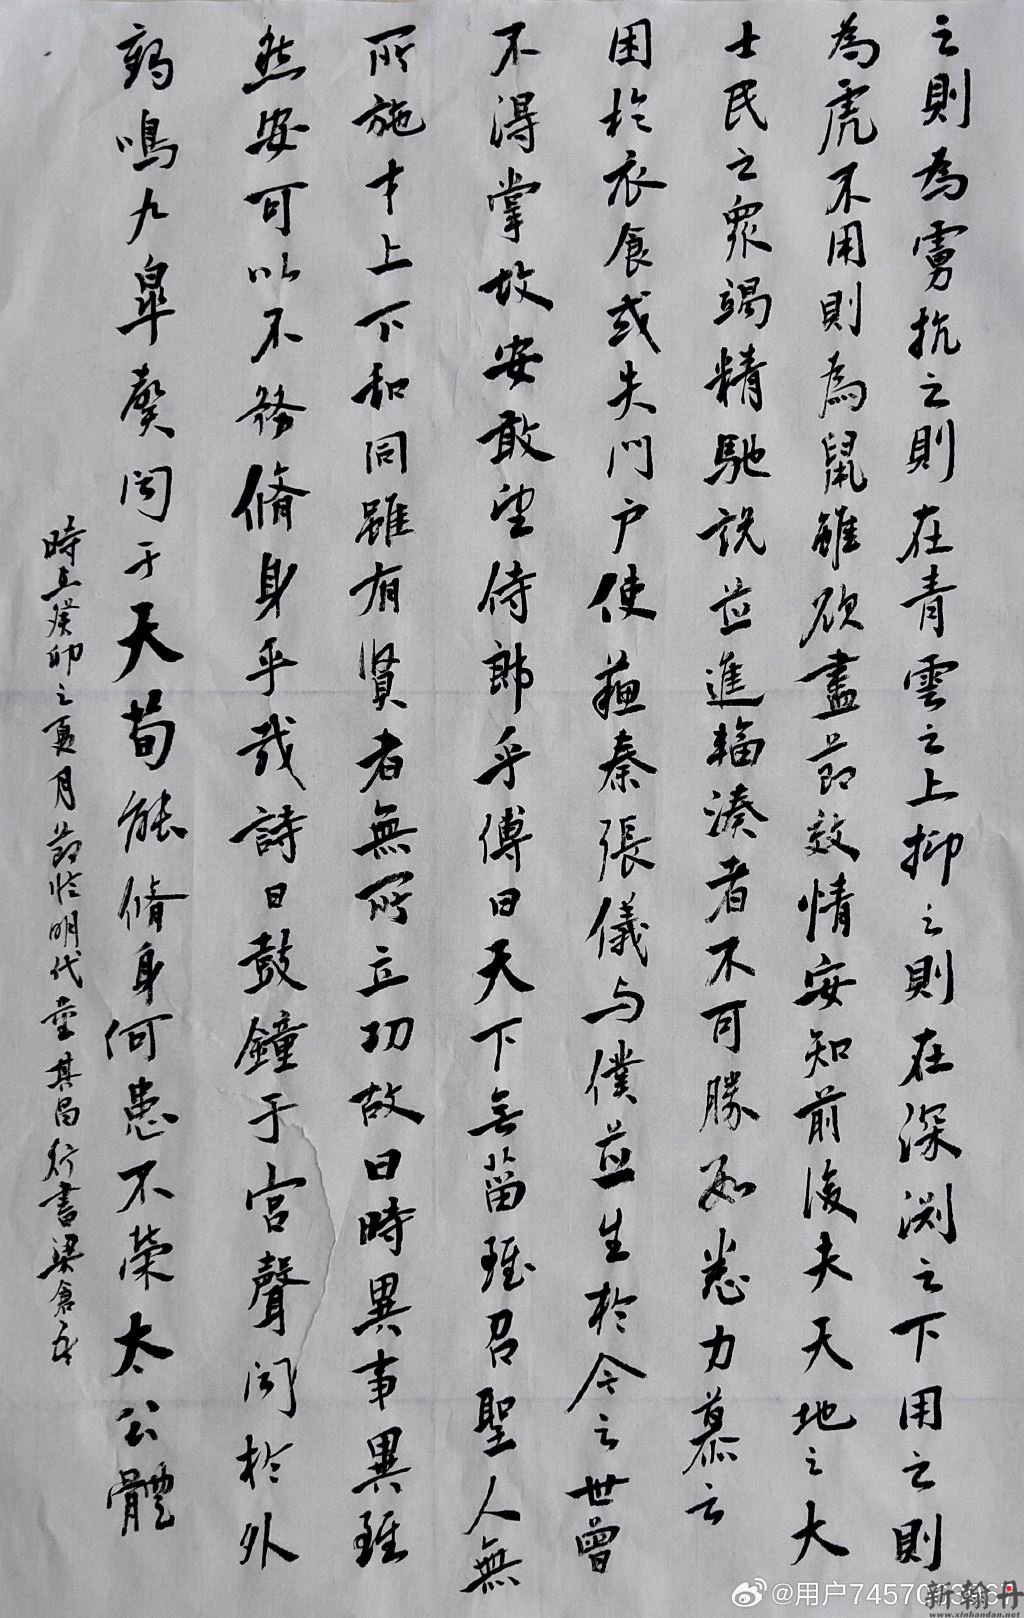 之則為虜抗之則在青雲之上抑之則在深淵之下用之則
為虎不用則為鼠雖欲盡節效情安知前後夫天地之大
士民之衆竭精馳說並進輻湊者不可勝數悉力慕之
困於衣食或失門户使蘇秦張儀與僕並生於今之世曾
不得掌故安敢望侍郎乎傳曰天下無菑雖聖人無
所施才上下和同雖有賢者無所立功故曰時異事異雖
然安可以不務脩身乎哉詩曰鼓鐘于宮聲聞於外
鶴鳴九皋聲聞于天苟能脩身何患不榮太公體
時在癸卯之夏月節臨明代董其昌行書梁倉
@用户7457
新翰丹
www.xinhandan.net